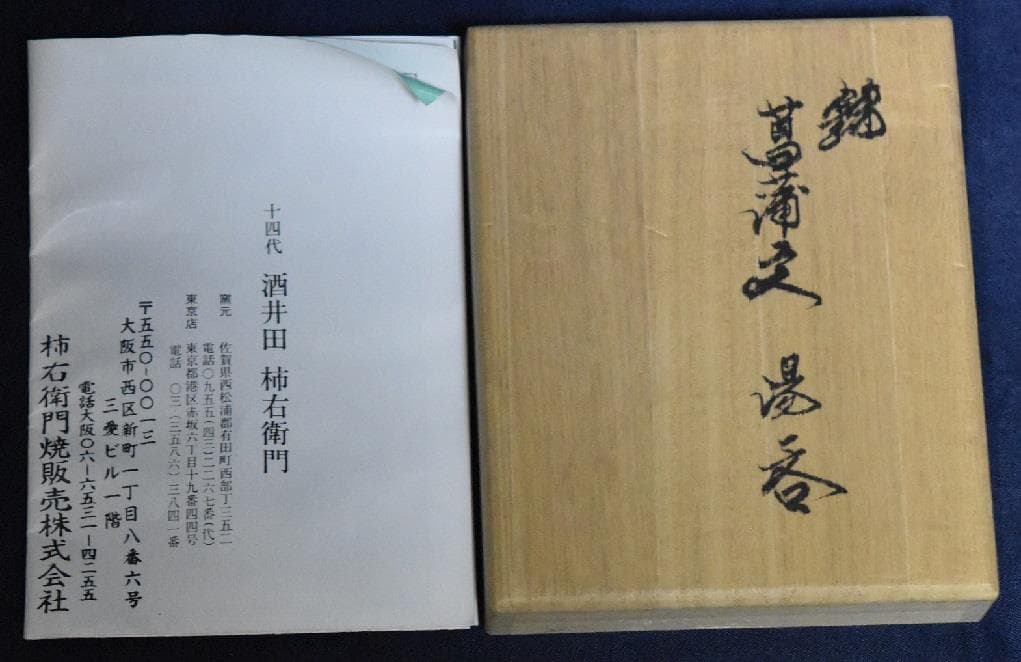 錦
菖蒲文 湯呑
十四代 酒井田 柿右衛門
窯元 佐賀県西松浦郡有田町西部丁三五二
電話〇九五五(四三)二二六七番(代)
東京店 東京都港区赤坂六丁目十九番四四号
電話 〇三(三五八六)三八四一番
〒五五〇-〇〇一三
大阪市西区新町一丁目八番六号
三愛ビル一階
電話大阪〇六-六五三一-四二五五
柿右衛門焼販売株式会社